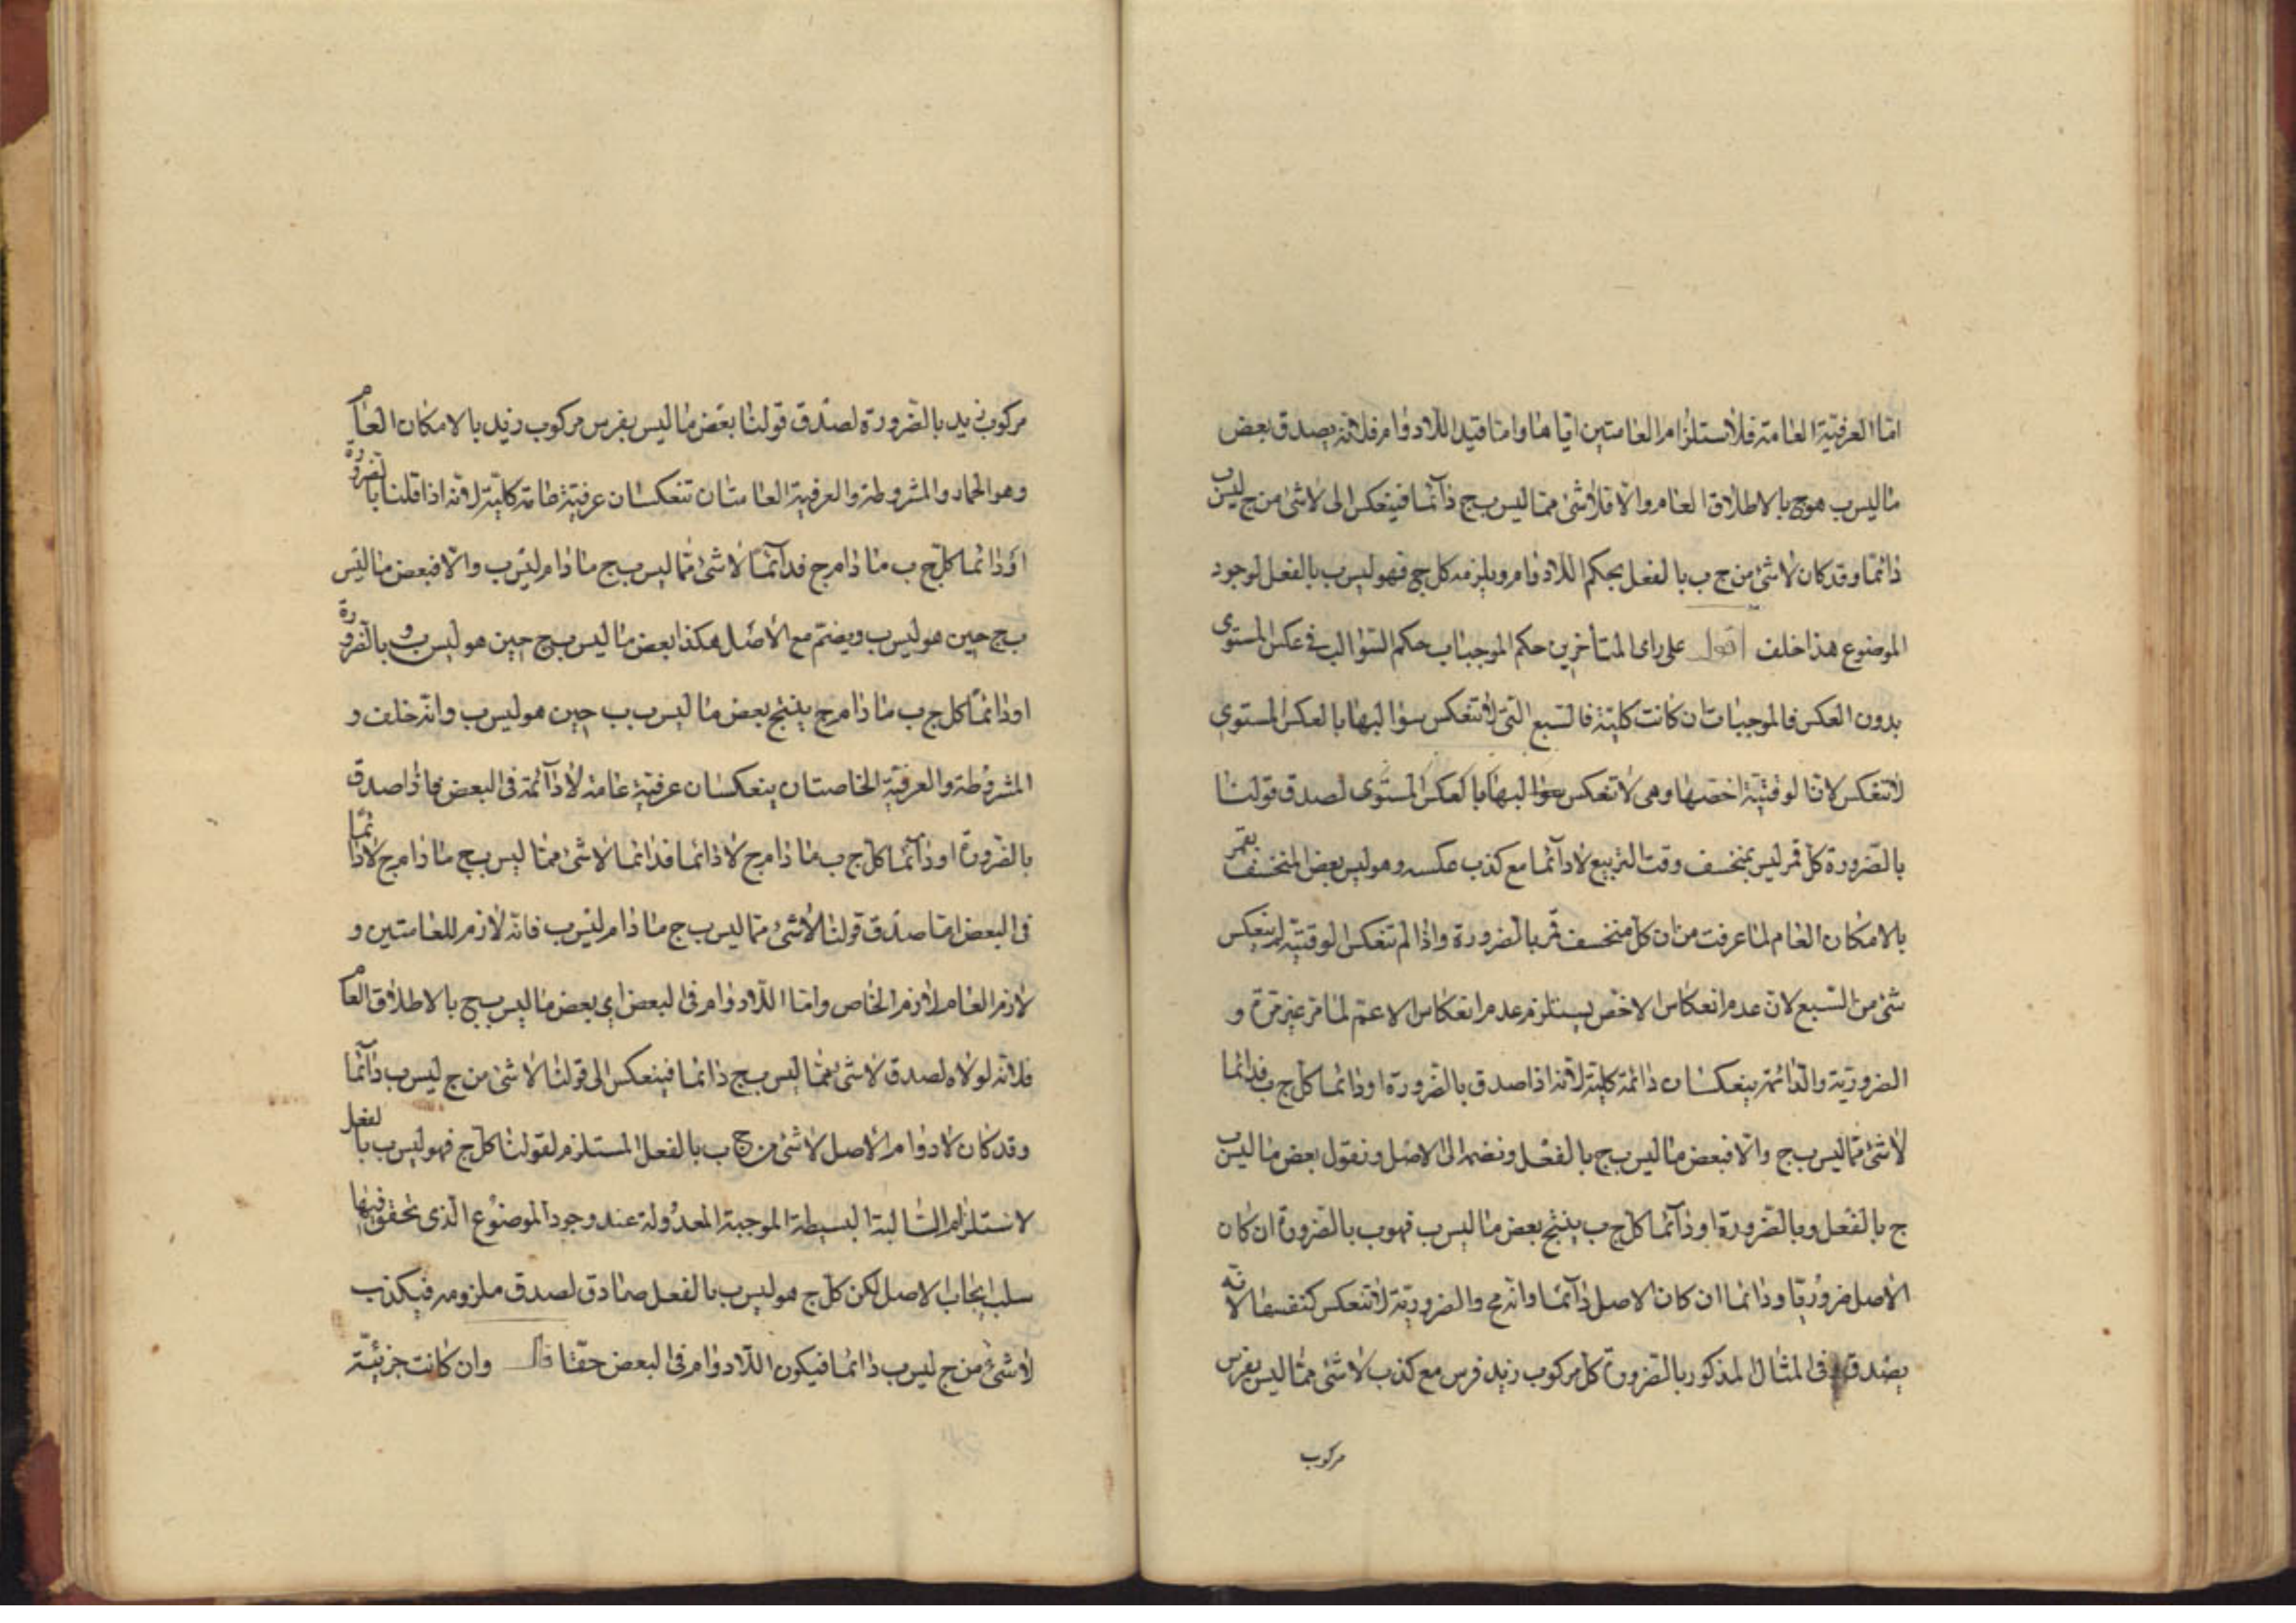 اما العرفية العامة فلاستلزام العامتين اياها واما قيد اللادوام فلانه يصدق بعض
ما ليس ب هو ج بالاطلاق العام والا فلا شئ مما ليس ب ج دائما فينعكس الى لا شئ من ج ليس ب
دائما وقد كان لا شئ من ج ب بالفعل بحكم اللادوام ويلزمه كل ج فهو ليس ب بالفعل لوجود
الموضوع هذا خلف اقول على راى المتأخرين حكم الموجبات حكم السوالب فى عكس المستوى
بدون العكس فالموجبات ان كانت كلية فالسبع التى لا تنعكس سوالبها بالعكس المستوى
لا تنعكس لان الوقتية اخصها وهى لا تنعكس سوالبها بالعكس المستوى لصدق قولنا
بالضرورة كل قمر ليس بمنخسف وقت التربيع لا دائما مع كذب عكسه وهو ليس بعض المنخسف بقمر
بالامكان العام لما عرفت من ان كل منخسف قمر بالضرورة واذا لم تنعكس الوقتية لم ينعكس
شئ من السبع لان عدم انعكاس الاخص يستلزم عدم انعكاس الاعم لما مر غير مرة و
الضرورية والدائمة ينعكسان دائمة كلية لانه اذا صدق بالضرورة او دائما كل ج ب فدائما
لا شئ مما ليس ب ج والا فبعض ما ليس ب ج بالفعل ونضمه الى الاصل ونقول بعض ما ليس ب
ج بالفعل وبالضرورة او دائما كل ج ب ينتج بعض ما ليس ب فهو ب بالضرورة ان كان
الاصل ضروريا ودائما ان كان الاصل دائما وانه مح والضرورية لا تنعكس كنفسها لانه
يصدق فى المثال المذكور بالضرورة كل مركوب زيد فرس مع كذب لا شئ مما ليس بفرس
مركوب
مركوب زيد بالضرورة لصدق قولنا بعض ما ليس بفرس مركوب زيد بالامكان العام
وهو الحمار والمشروطة والعرفية العامتان تنعكسان عرفية عامة كلية لانه اذا قلنا بالضرورة
او دائما كل ج ب ما دام ج فدائما لا شئ مما ليس ب ج ما دام ليس ب والا فبعض ما ليس
ب ج حين هو ليس ب ويضم مع الاصل هكذا بعض ما ليس ب ج حين هو ليس ب و بالضرورة
او دائما كل ج ب ما دام ج ينتج بعض ما ليس ب ب حين هو ليس ب وانه خلف و
المشروطة والعرفية الخاصتان ينعكسان عرفية عامة لا دائمة فى البعض فاذا صدق
بالضرورة او دائما كل ج ب ما دام ج لا دائما فدائما لا شئ مما ليس ب ج ما دام ج لا دائما
فى البعض اما صدق قولنا لا شئ مما ليس ب ج ما دام ليس ب فانه لازم للعامتين و
لازم العام لازم الخاص واما اللادوام فى البعض اى بعض ما ليس ب ج بالاطلاق العام
فلانه لولاه لصدق لا شئ مما ليس ب ج دائما فينعكس الى قولنا لا شئ من ج ليس ب دائما
وقد كان لا دوام الاصل لا شئ من ج ب بالفعل المستلزم لقولنا كل ج فهو ليس ب بالفعل
لاستلزام السالبة البسيطة الموجبة المعدولة عند وجود الموضوع الذى تحقق فيها
سلب ايجاب الاصل لكن كل ج هو ليس ب بالفعل صادق لصدق ملزومه فيكذب
لا شئ من ج ليس ب دائما فيكون اللادوام فى البعض حقا قال وان كانت جزئية